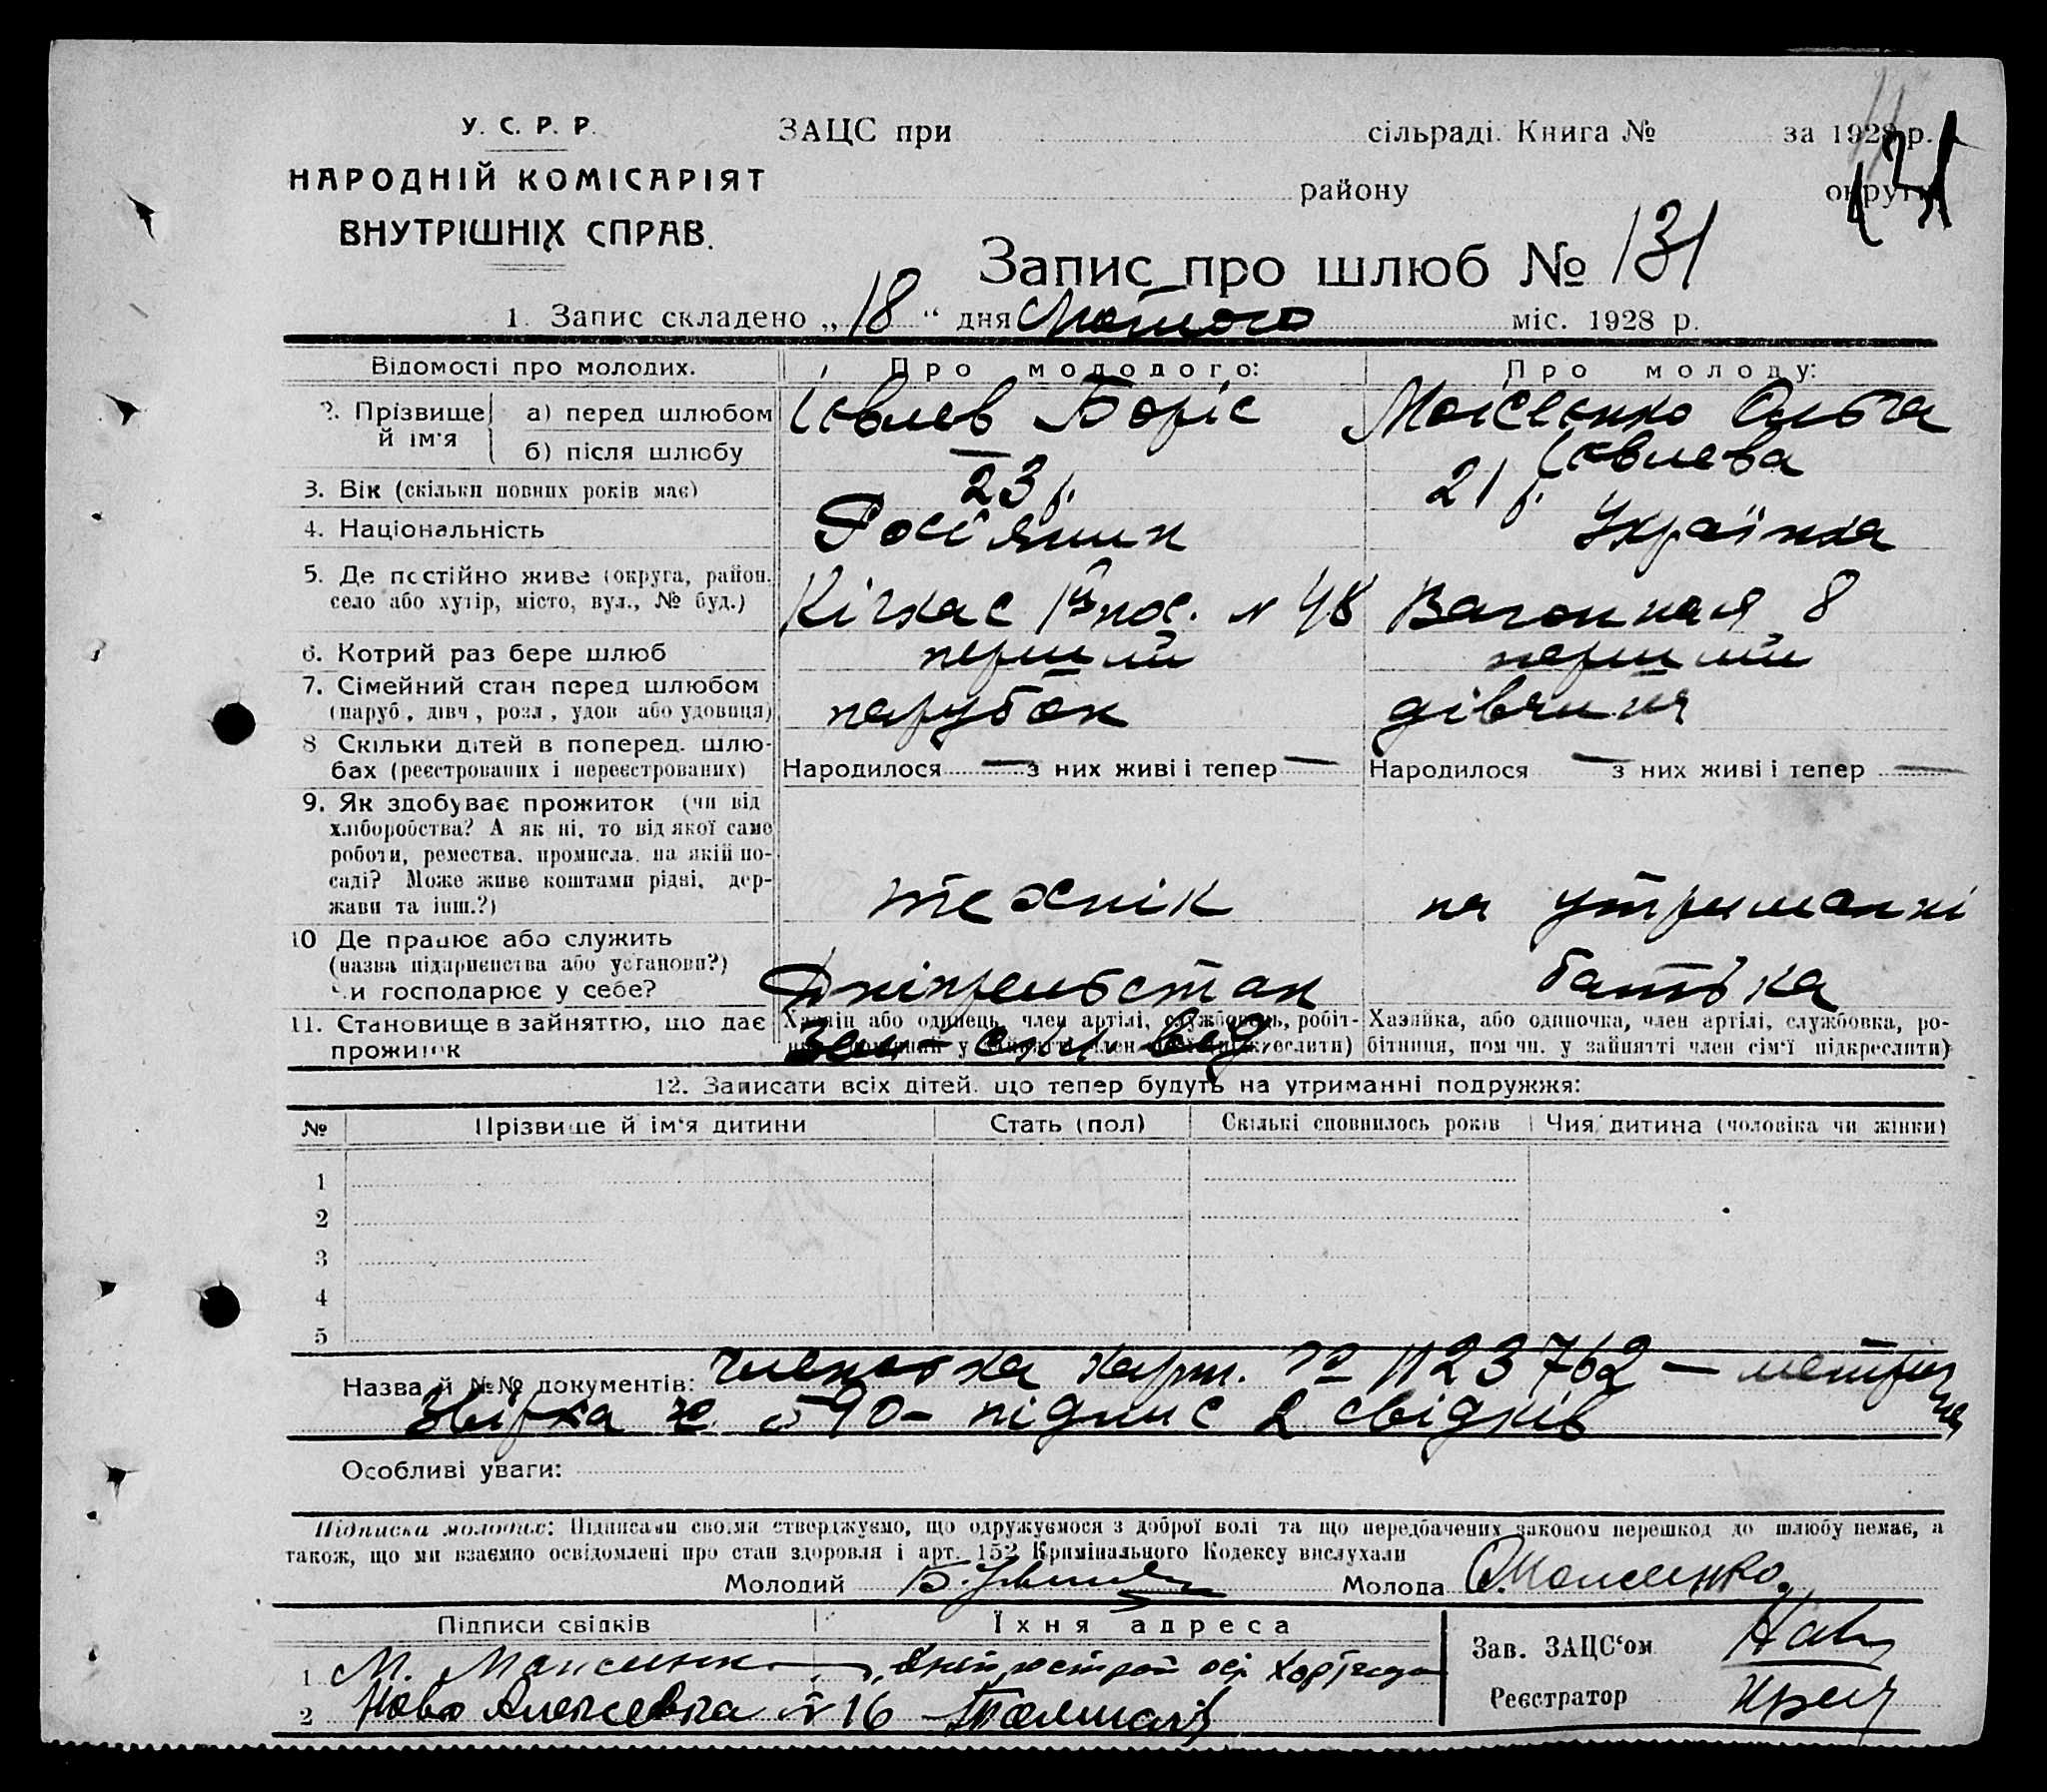 У. С. Р. Р.
НАРОДНІЙ КОМІСАРІЯТ
ВНУТРІШНІХ СПРАВ.
ЗАЦС при сільраді. Книга № за 1928 р.
району округи
131
Запис про шлюб № 131
1. Запис складено „18“ дня Лютого міс. 1928 р.
Відомості про молодих. Про молодого: Про молоду:
2. Прізвище й ім'я
а) перед шлюбом Ієвлев Боріс Моісеєнко Ольга
б) після шлюбу — Ієвлева
3. Вік (скільки повних років має) 23 р. 21 р.
4. Національність Росіянин Українка
5. Де постійно живе (округа, район, село або хутір, місто, вул., № буд.) Кічкас пос. № 48 Вагонная 8
6. Котрий раз бере шлюб перший перший
7. Сімейний стан перед шлюбом (паруб., дівч., розл., удов. або удовиця) парубок дівчина
8. Скільки дітей в поперед. шлюбах (реєстрованих і нереєстрованих) Народилося — з них живі і тепер — Народилося — з них живі і тепер —
9. Як здобуває прожиток (чи від хліборобства? А як ні, то від якої саме роботи, ремества, промисла, на якій посаді? Може живе коштами рідні, держави та інш.?) технік на утриманні
10. Де працює або служить (назва підприємства або установи?) Чи господарює у себе? батька
11. Становище в зайнятю, що дає прожиток Хазяїн або одинець, член артілі, службовець, робіт- у зайнятті член підкреслити) Хазяйка, або одиночка, член артілі, службовка, робітниця, пом чн. у зайнятті член сім'ї підкреслити)
12. Записати всіх дітей, що тепер будуть на утриманні подружжя:
№ Прізвище й ім'я дитини Стать (пол) Скількі сповнилось років Чия дитина (чоловіка чи жінки)
1
2
3
4
5
Назва й №№ документів: членська карт. № 1123762 — метрична
звірка № 590 — підпис 2 свідків
Особливі уваги:
Підписка молодих: Підписами своїми стверджуємо, що одружуємося з доброї волі та що передбачених законом перешкод до шлюбу немає, а
також, що ми взаємно освідомлені про стан здоровля і арт. 152 Кримінального Кодексу вислухали
Молодий Молода О. Моисеенко.
Підписи свідків Їхня адреса
1 М. Моисеенко Днепрострой
2 Ново Алексеевка № 16
Зав. ЗАЦС'ом
Реєстратор